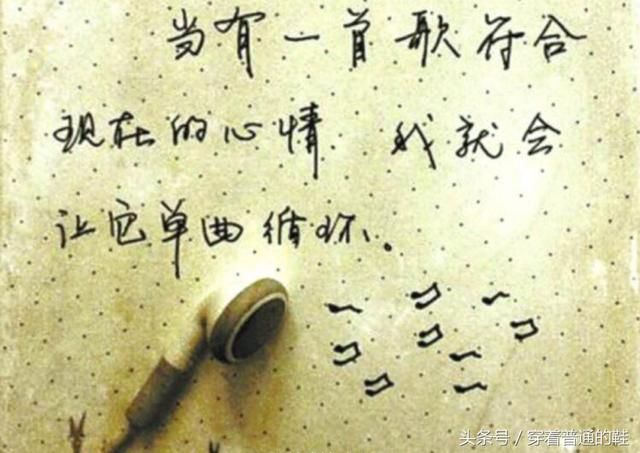 当有一首歌符合
现在的心情 我就会
让它单曲循环。
头条号／穿着普通的鞋